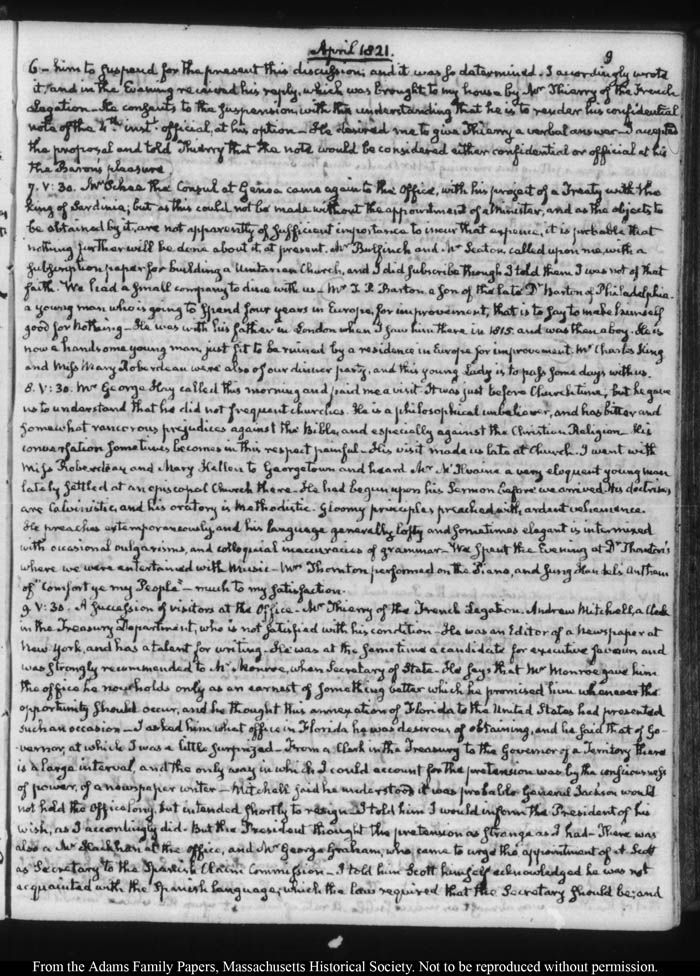 April 1821.
9
6 – him to suspend for the present this discussion; and it was so determined. I accordingly wrote
it, and in the Evening received his reply, which was brought to my house by Mr Thierry of the French
Legation – He consents to the suspension, with the understanding that he is to render his confidential
note of the 4th instt official, at his option – He desired me to give Thierry a verbal answer – I accepted
the proposal and told Thierry that the note would be considered either confidential or official at his
the Baron's pleasure.
7. V: 30. Mr the Consul at Genoa came again to the Office, with his projet of a Treaty with the
King of Sardinia; but as this could not be made without the appointment of a Minister, and as the objects to
be obtained by it, are not apparently of sufficient importance to incur that expence, it is probable that
nothing further will be done about it, at present. Mr Bulfinch and Mr Seaton called upon me, with a
subscription paper for building a Unitarian Church, and I did subscribe though I told them I was not of that
faith. We had a small company to dine with us – Mr T. P. Barton, a Son of the late Dr Barton of Philadelphia –
a young man who is going to spend four years in Europe, for improvement, that is to say to make himself
good for Nothing – He was with his father in London when I saw him there in 1815. and was then a boy. He is
now a handsome young man, just fit to be ruined by a residence in Europe for improvement. Mr Charles King
and Miss Mary Roberdeau were also of our dinner party, and this young Lady is to pass some days with us.
8. V: 30. Mr George Hay called this morning and paid me a visit. It was just before Church time; but he gave
us to understand that he did not frequent churches. He is a philosophical unbeliever, and has bitter and
somewhat rancorous prejudices against the Bible, and especially against the Christian Religion – His
conversation sometimes becomes in this respect painful – His visit made us late at Church. I went with
Miss Roberdeau and Mary Hellen to Georgetown and heard Mr McIlvaine a very eloquent young man
lately settled at an episcopal Church there. He had begun upon his Sermon before we arrived. His doctrines
are Calvinistic, and his oratory is Methodistic. Gloomy principles preached with ardent vehemence.
He preaches extemporaneously and his language generally lofty and sometimes elegant is intermixed
with occasional vulgarisms, and colloquial inaccuracies of grammar – We spent the Evening at Dr Thornton's
where we were entertained with Music – Mrs Thornton performed on the Piano, and sung Handel's Anthem
of "Comfort ye my People" – much to my satisfaction.
9. V: 30. A succession of visitors at the Office – Mr Thierry of the French Legation. Andrew Mitchell, a Clerk
in the Treasury Department, who is not satisfied with his condition – He was an Editor of a Newspaper at
New York, and has a talent for writing. He was at the same time a candidate for executive favour and
was strongly recommended to Mr Monroe, when Secretary of State. He says that Mr Monroe gave him
the office he now holds only as an earnest of something better which he promised him whenever the
opportunity should occur, and he thought this annexation of Florida to the United States had presented
such an occasion – I asked him what office in Florida he was desirous of obtaining, and he said that of Go-
vernor, at which I was a little surprized – From a Clerk in the Treasury to the Governor of a Territory there
is a large interval, and the only way in which I could account for the pretension was by the consciousness
of power, of a newspaper writer – Mitchell said he understood it was probable General Jackson would
not hold the Office long, but intended shortly to resign – I told him I would inform the President of his
wish, as I accordingly did. But the President thought the pretension as strange as I had – There was
also a Mr at the office, and Mr George Graham, who came to urge the appointment of A Scott
as Secretary to the Spanish Claim Commission – I told him Scott himself acknowledged he was not
acquainted with the Spanish language, which the law required that the Secretary should be; and
From the Adams Family Papers, Massachusetts Historical Society. Not to be reproduced without permission.